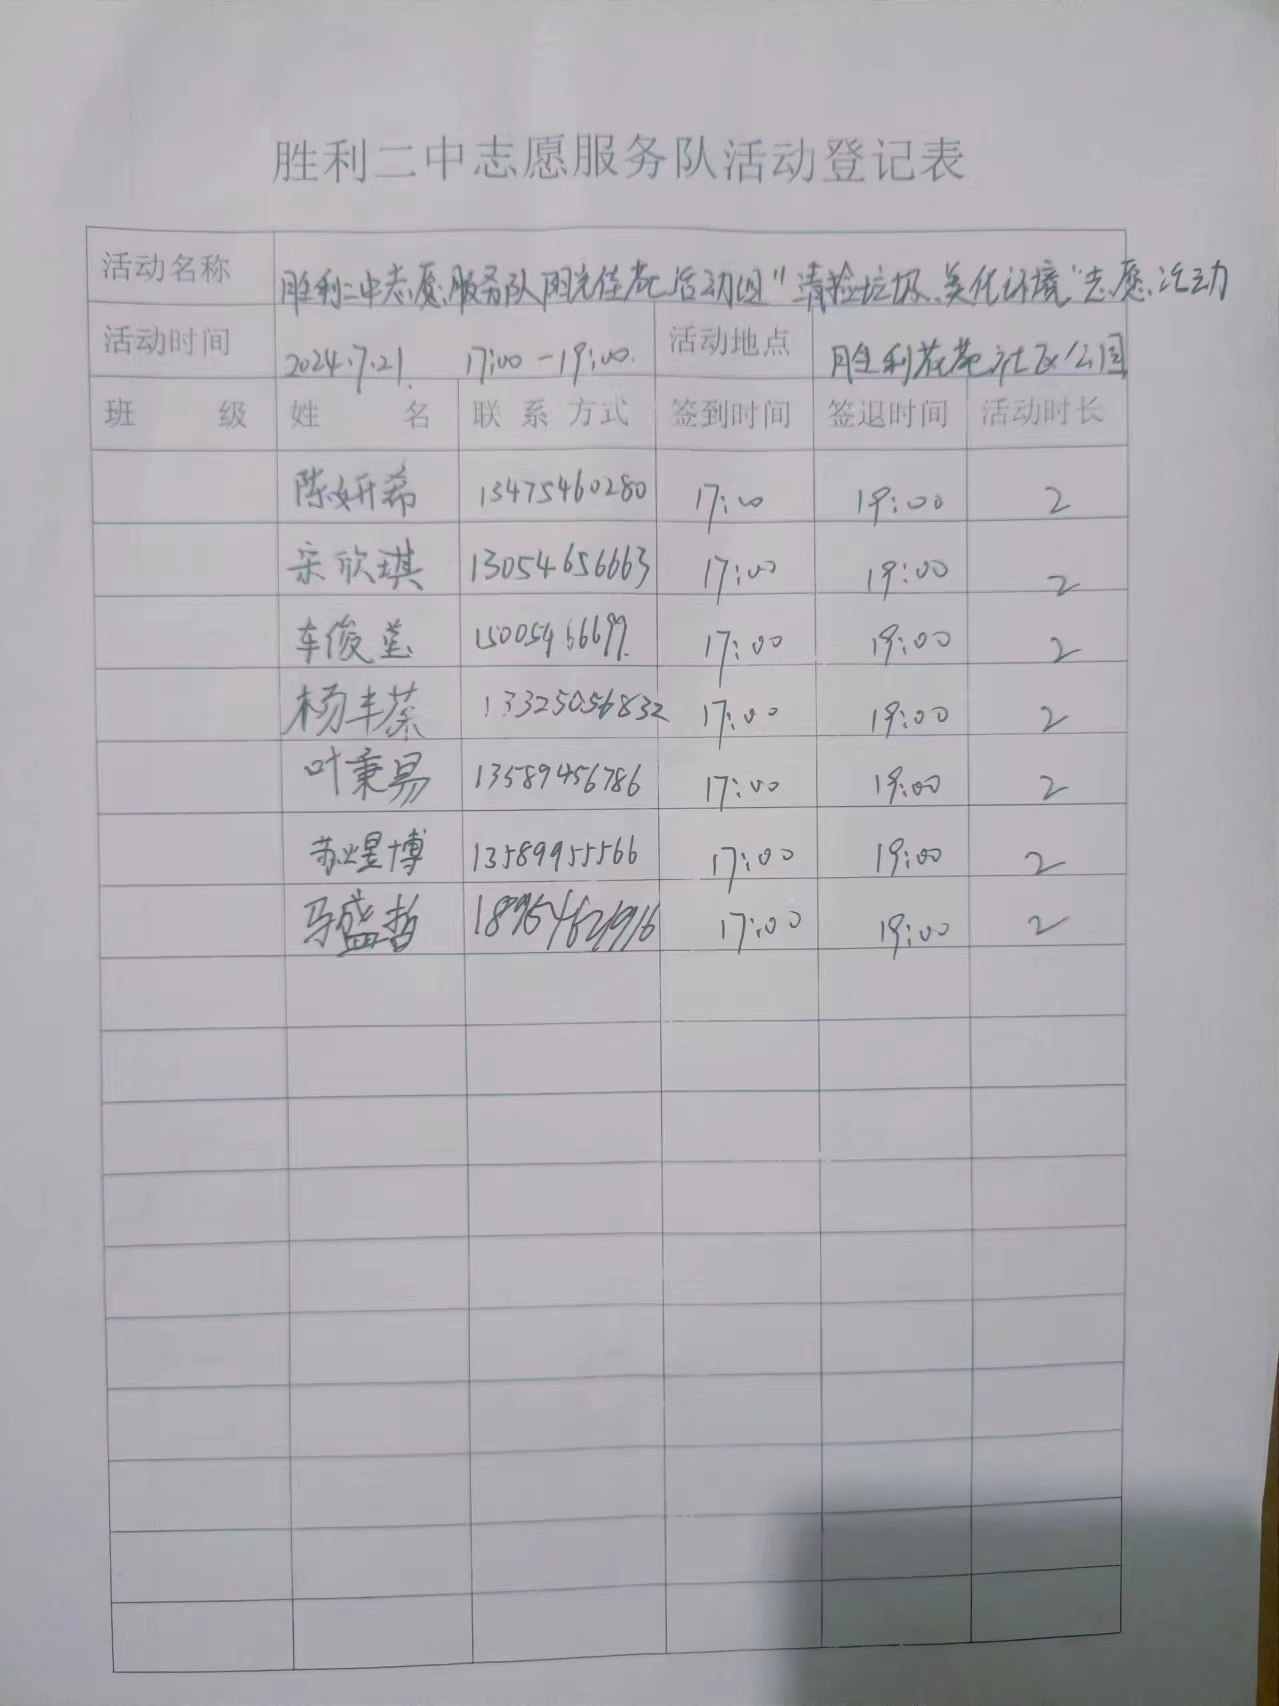 胜利二中志愿服务队活动登记表
活动名称 胜利二中志愿服务队阳光佳苑活动组"清捡垃圾、美化环境"志愿活动
活动时间 2024.7.21. 17:00-19:00. 活动地点 胜利花苑社区公园
班级 姓名 联系方式 签到时间 签退时间 活动时长
陈妍希 13475460280 17:00 19:00 2
宋欣琪 13054656663 17:00 19:00 2
车俊莹 15005466699. 17:00 19:00 2
杨丰蓁 13325056832 17:00 19:00 2
叶秉易 13589456786 17:00 19:00 2
苏煜博 13589955566 17:00 19:00 2
马盛哲 17:00 19:00 2